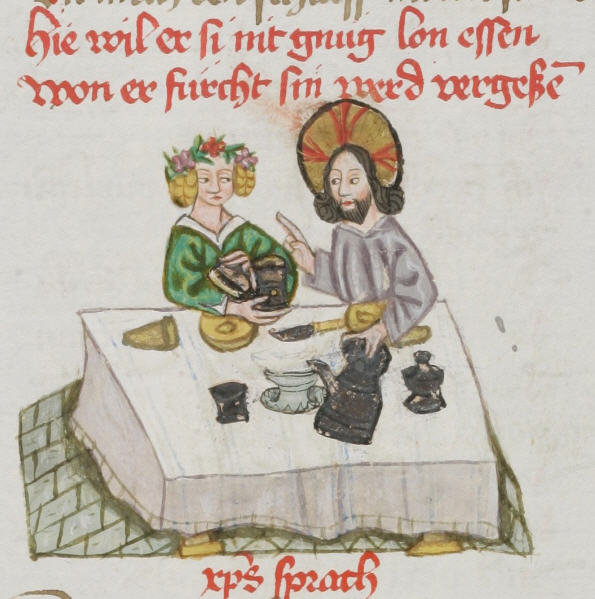 Hie wil er si nit gnuͦg lon essen
won er fürcht sin werd vergeßē
xp̄s sprach